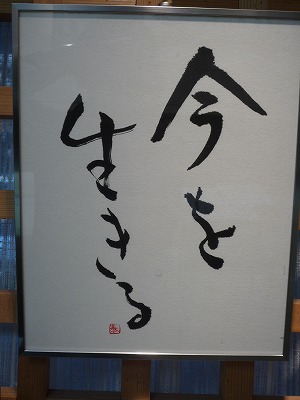 今を
生きる